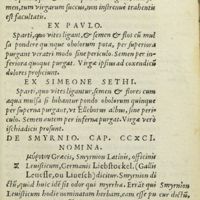 mum, tum virgarum succus, non instrenue trahentis
est facultatis.
EX PAVLO.
Sparti, quo vites ligant, & semen & flos cũ mul
sa pondere quinque obolorum pota, per superiora
purgant vexato modo sine periculo. Semen per in-
feriora quoque purgat. Virgæ ipsius ad coxendicis
dolores proficiunt.
EX SIMEONE SETHI.
Sparti, quo vites ligantur, semen & flores cum
aqua mulsa si bibantur pondo obolorum quinque
per superiora purgant, ut Elleborum albũ, sine peri-
culo. Semen autem per inferna purgat. Virgæ verò
ischiadicis prosunt.
DE SMYRNIO. CAP. CCXCI.
NOMINA.
Græcis, Smyrnium Latinis, officinis
Leuisticum, Germanis Liebstockel. (Gallis
Leuesse, ou Luuesch) dicitur. Smyrnion di
ctũ, quòd huic idẽ sit odor qui myrrha. Errãt qui Smyrnion
Leuisticum hodie nominatum herbam, eam esse pu